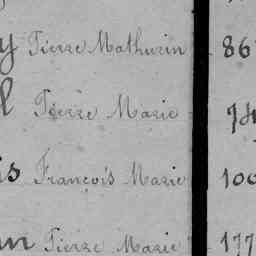 y Pierre Mathurin 86
l Pierre Marie 74
is François Marie 100
an Pierre Marie 177